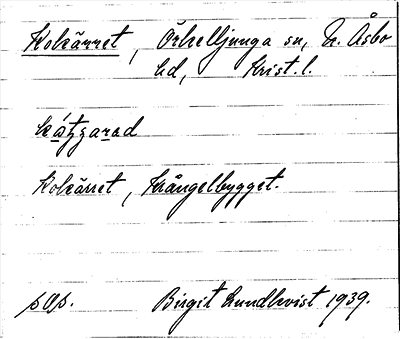 Kokärret, Örkelljunga sn, N. Åsbo
hd, Krist. l.
Kokärret, Krångelbygget.
Birgit Lundkvist 1939.